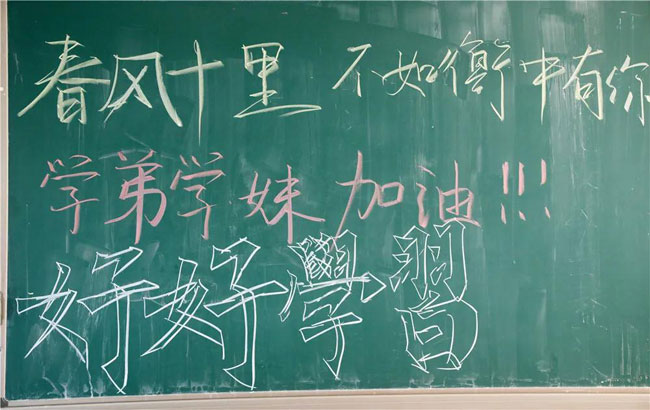 春风十里 不如衡中有你
学弟学妹 加油!!!
好好學習